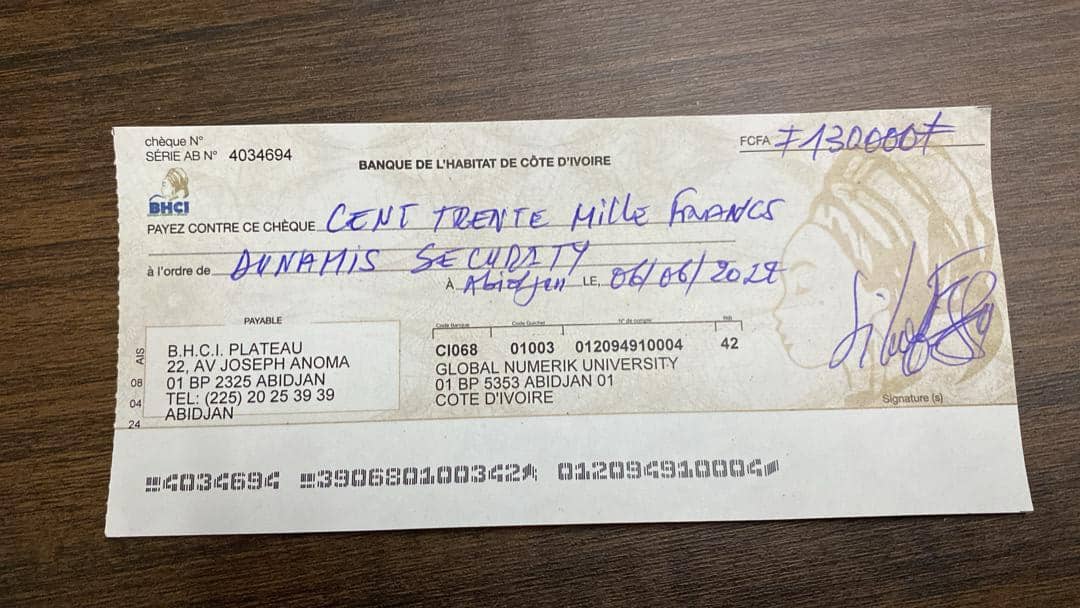 chèque N°
SÉRIE AB N° 4034694
BANQUE DE L'HABITAT DE CÔTE D'IVOIRE
FCFA ≠130000≠
BHCI
PAYEZ CONTRE CE CHÈQUE CENT TRENTE MILLE FRANCS
à l'ordre de DUNAMIS SECURITY
À Abidjan LE, 06/06/2022
PAYABLE
B.H.C.I. PLATEAU
22, AV JOSEPH ANOMA
01 BP 2325 ABIDJAN
TEL: (225) 20 25 39 39
ABIDJAN
AIS
08
04
24
Code Banque Code Guichet N° de compte RIB
CI068 01003 012094910004 42
GLOBAL NUMERIK UNIVERSITY
01 BP 5353 ABIDJAN 01
COTE D'IVOIRE
Signature (s)
4034694 390680100342 012094910004